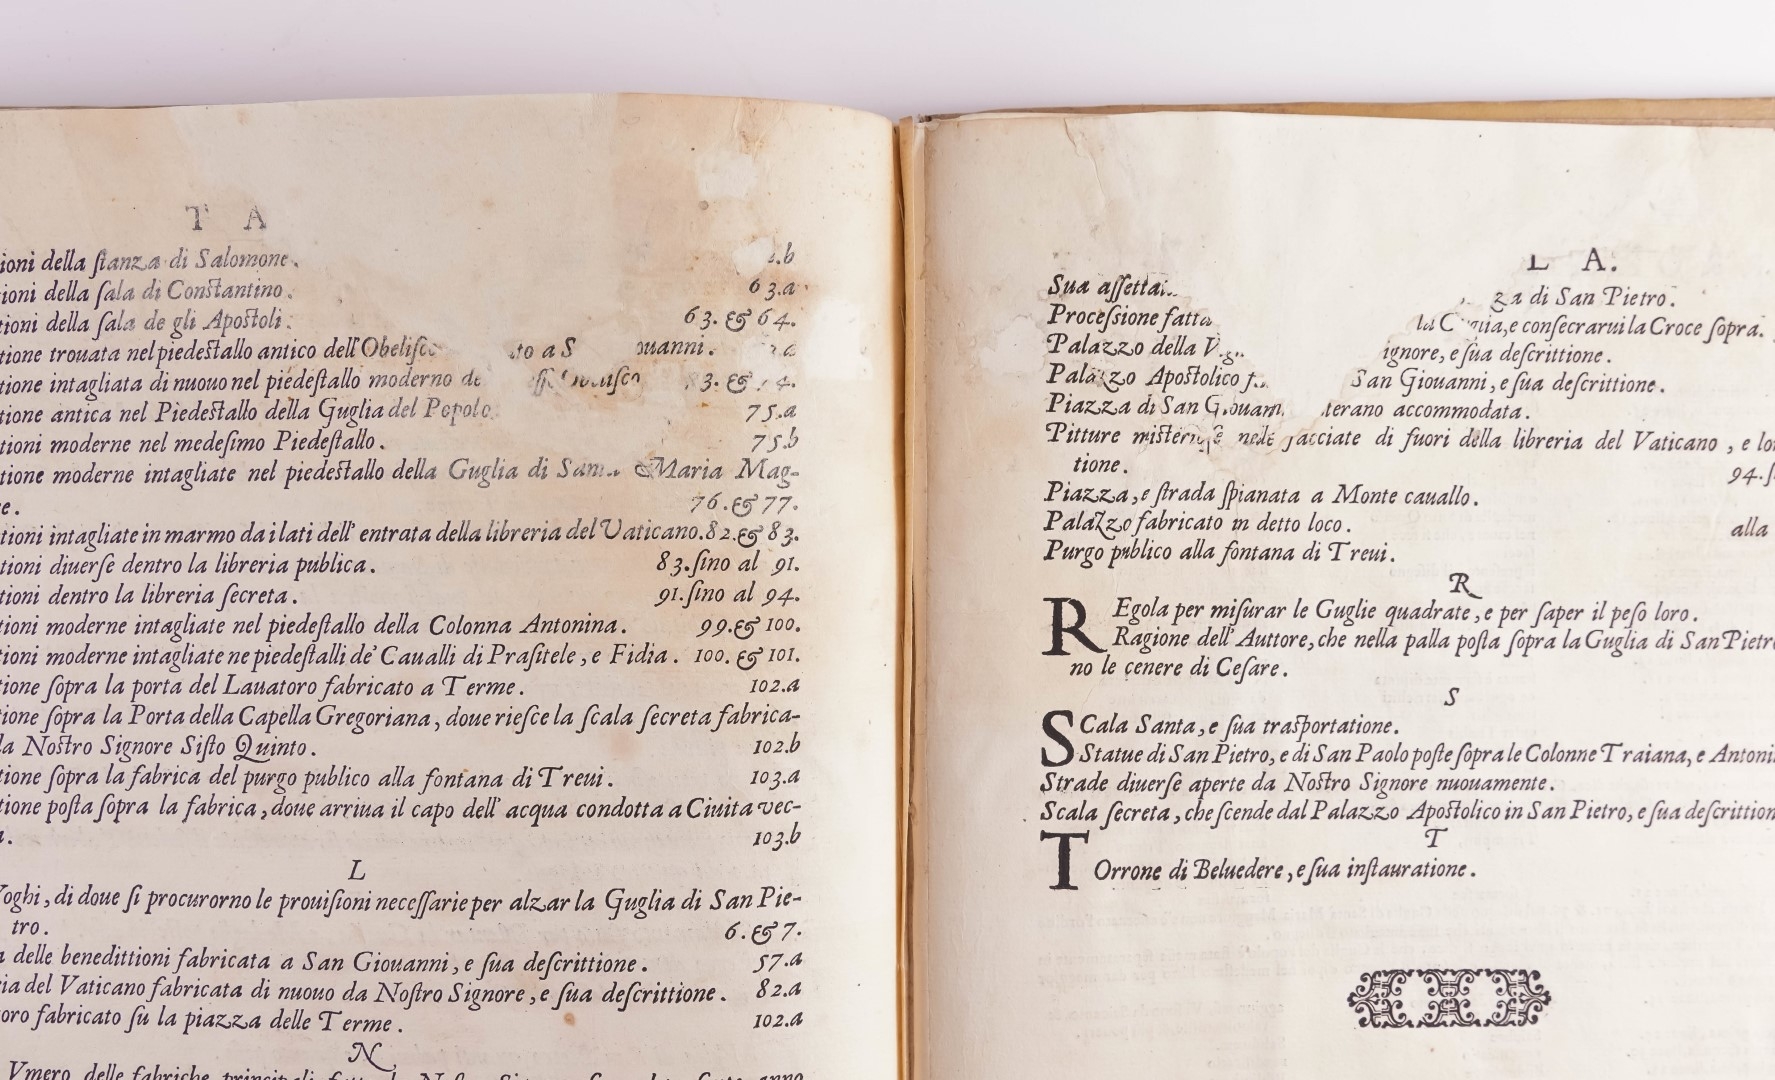 T A
ioni della ſtanza di Salomone. .b
ioni della ſala di Conſtantino. 63.a
tioni della ſala de gli Apoſtoli. 63. & 64.
tione trouata nel piedeſtallo antico dell'Obeliſc to a S ouanni. a
tione intagliata di nuouo nel piedeſtallo moderno de 3. & 4.
tione antica nel Piedeſtallo della Guglia del Popolo. 75.a
tioni moderne nel medeſimo Piedeſtallo. 75.b
tione moderne intagliate nel piedeſtallo della Guglia di Maria Mag-
e. 76. & 77.
tioni intagliate in marmo da i lati dell' entrata della libreria del Vaticano. 82. & 83.
tioni diuerſe dentro la libreria publica. 83. ſino al 91.
tioni dentro la libreria ſecreta. 91. ſino al 94.
tioni moderne intagliate nel piedeſtallo della Colonna Antonina. 99. & 100.
tioni moderne intagliate ne piedeſtalli de' Caualli di Praſitele, e Fidia. 100. & 101.
tione ſopra la porta del Lauatoro fabricato a Terme. 102.a
tione ſopra la Porta della Capella Gregoriana, doue rieſce la ſcala ſecreta fabrica-
la Noſtro Signore Siſto Quinto. 102.b
tione ſopra la fabrica del purgo publico alla fontana di Treui. 103.a
tione poſta ſopra la fabrica, doue arriua il capo dell' acqua condotta a Ciuita vec-
a. 103.b
L
oghi, di doue ſi procurorno le prouiſioni neceſſarie per alzar la Guglia di San Pie-
tro. 6. & 7.
a delle benedittioni fabricata a San Giouanni, e ſua deſcrittione. 57.a
ria del Vaticano fabricata di nuouo da Noſtro Signore, e ſua deſcrittione. 82.a
oro fabricato ſù la piazza delle Terme. 102.a
N
Vmero delle fabriche principali anno
L A.
Sua aſſettat za di San Pietro.
Proceſsione fatta la Guglia, e conſecrarui la Croce ſopra.
Palazzo della V ignore, e ſua deſcrittione.
Palazzo Apoſtolico f San Giouanni, e ſua deſcrittione.
Piazza di San Giouann terano accommodata.
Pitture miſterioſe nelle facciate di fuori della libreria del Vaticano, e lor
tione. 94.ſ
Piazza, e ſtrada ſpianata a Monte cauallo.
Palazzo fabricato in detto loco. alla
Purgo publico alla fontana di Treui.
R
REgola per miſurar le Guglie quadrate, e per ſaper il peſo loro.
Ragione dell' Auttore, che nella palla poſta ſopra la Guglia di San Pietro
no le cenere di Ceſare.
S
SCala Santa, e ſua traſportatione.
Statue di San Pietro, e di San Paolo poſte ſopra le Colonne Traiana, e Antoni
Strade diuerſe aperte da Noſtro Signore nuouamente.
Scala ſecreta, che ſcende dal Palazzo Apoſtolico in San Pietro, e ſua deſcrittion
T
TOrrone di Beluedere, e ſua inſtauratione.